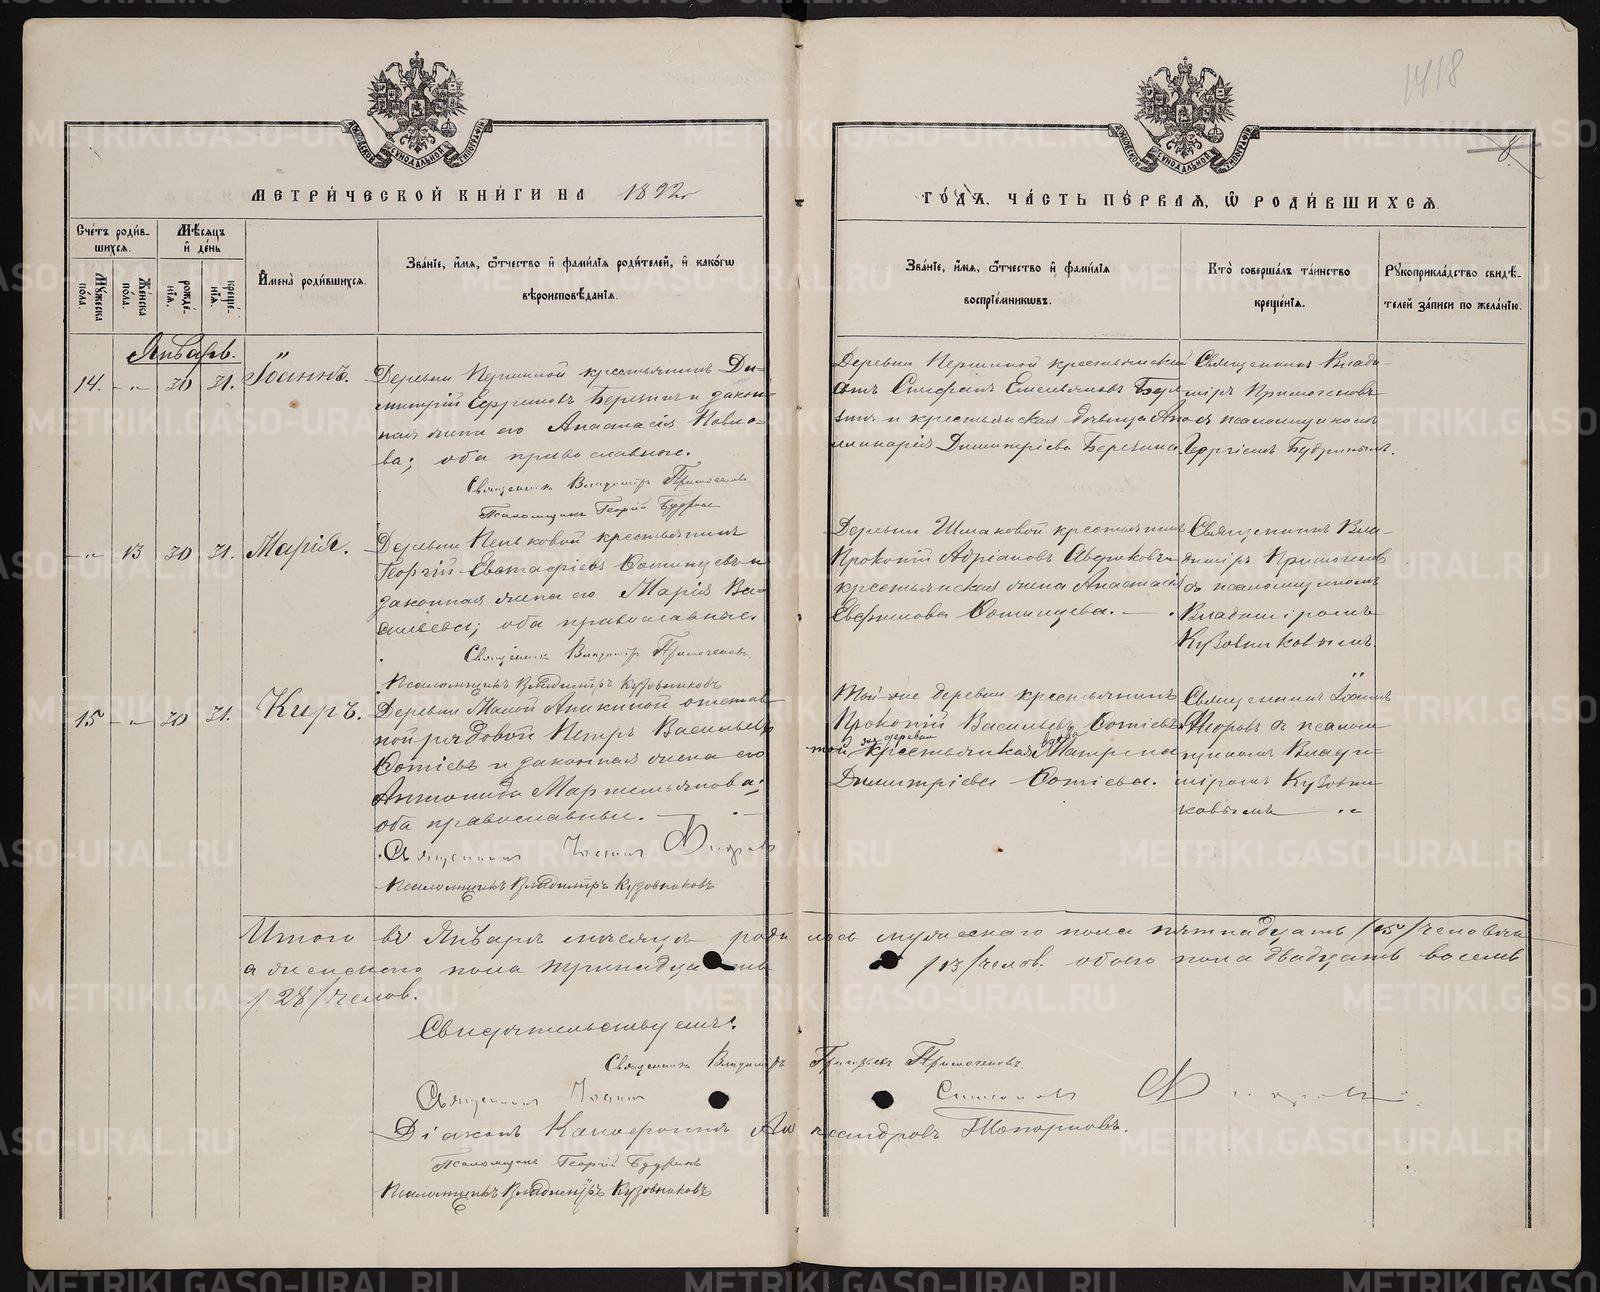 1418
8.
МЕТРИЧЕСКОЙ КНИГИ НА 1892 г
ГОДЪ, ЧАСТЬ ПЕРВАЯ, Ѿ РОДИВШИХСЯ.
Счетъ родив-
шихся.
Мѣсяцъ
и день
Мужеска
пола.
Женска
пола.
рожде-
нія.
креще-
нія.
Имена родившихся.
Званіе, имя, ѿтчество и фамилія родителей, и какогѡ
вѣроисповѣданія.
Званіе, имя, ѿтчество и фамилія
воспріемниковъ.
Кто совершалъ таинство
крещенія.
Рукоприкладство свидѣ-
телей записи по желанію.
Январь.
14. - " - 30 31. Іоаннъ.
Деревни Першиной крестьянинъ Ди-
митрій Ефремовъ Березинъ и закон-
ная жена его Анастасія Павло-
ва; оба православные.
Священникъ Владиміръ
Псаломщикъ Георгій Будринъ
Деревни Першиной крестьянскій
Стефанъ Емельяновъ
и крестьянская дѣвица Апо-
линарія Димитріева Березина.
Священникъ Влади-
міръ
съ псаломщикомъ
Георгіемъ Будринымъ.
- " - 13 30 31. Марія.
Деревни Пеньковой крестьянинъ
Георгій Евстафіевъ и
законная жена его Марія Ва-
сильева; оба православные.
Священникъ Владиміръ
Псаломщикъ Владиміръ Кузовниковъ
Деревни Шмаковой крестьянинъ
Прокопій Адріановъ и
крестьянская жена Анастасія
Евфимова
Священникъ Вла-
диміръ
съ псаломщикомъ
Владиміромъ
Кузовниковымъ.
15 - " - 30 31. Киръ.
Деревни Малой Аникиной отстав-
ной рядовой Петръ Васильевъ
Фотіевъ и законная жена его
Антонида Мартемьянова;
оба православные.
Священникъ Іоаннъ Флоровъ
Псаломщикъ Владиміръ Кузовниковъ
Той-же деревни крестьянинъ
Прокопій Васильевъ Фотіевъ
той же деревни крестьянская вдова Матрена
Димитріева Фотіева.
Священникъ Іоаннъ
Флоровъ съ псалом-
щикомъ Влади-
міромъ Кузовни-
ковымъ
Итого въ Январѣ мѣсяцѣ родилось мужескаго пола пятнадцать /15/ человѣкъ
а женскаго пола тринадцать /13/ челов. обоего пола двадцать восемь
/28/ челов.
Свидѣтельствуемъ:
Священникъ Владиміръ
Священникъ Іоаннъ Симеоновъ Флоровъ
Діаконъ Ксенофонтъ Александровъ Топорковъ.
Псаломщикъ Георгій Будринъ
Псаломщикъ Владиміръ Кузовниковъ
METRIKI.GASO-URAL.RU